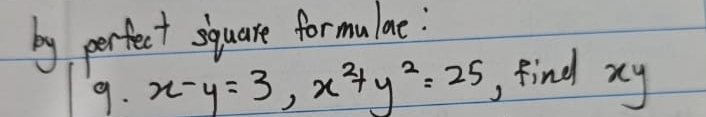 by perfect square formulae:
9. x-y=3, x²+y²=25, find xy